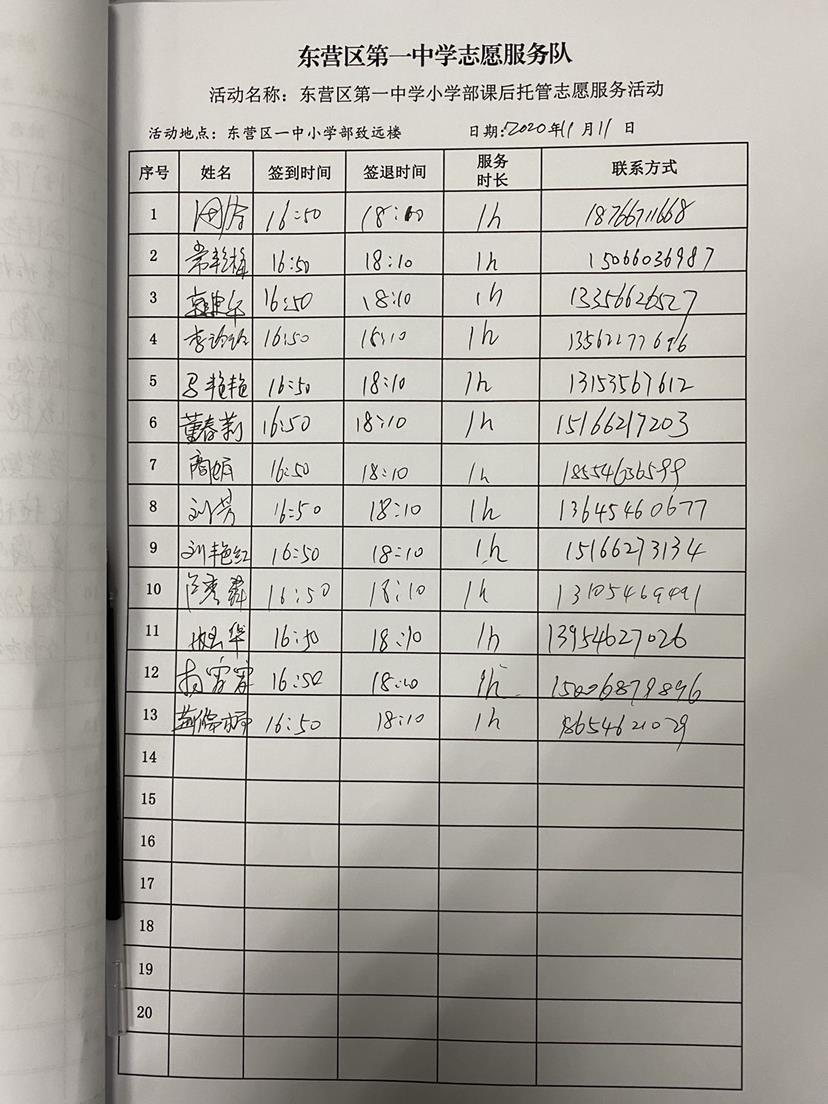 东营区第一中学志愿服务队
活动名称：东营区第一中学小学部课后托管志愿服务活动
活动地点：东营区一中小学部致远楼 日期:2020年11月11日
序号 姓名 签到时间 签退时间 服务时长 联系方式
1 16:50 18:10 1h 18766711668
2 常艳梅 16:50 18:10 1h 15066036987
3 16:50 18:10 1h 13356626527
4 李玲玲 16:50 18:10 1h 13562177696
5 马艳艳 16:50 18:10 1h 13153567612
6 董春莉 16:50 18:10 1h 15166217203
7 商娟 16:50 18:10 1h 18554636599
8 刘芳 16:50 18:10 1h 13645460677
9 刘艳红 16:50 18:10 1h 15166273134
10 16:50 18:10 1h 13105469491
11 16:50 18:10 1h 13954627026
12 16:50 18:10 1h 15006879896
13 16:50 18:10 1h 18654621029
14
15
16
17
18
19
20